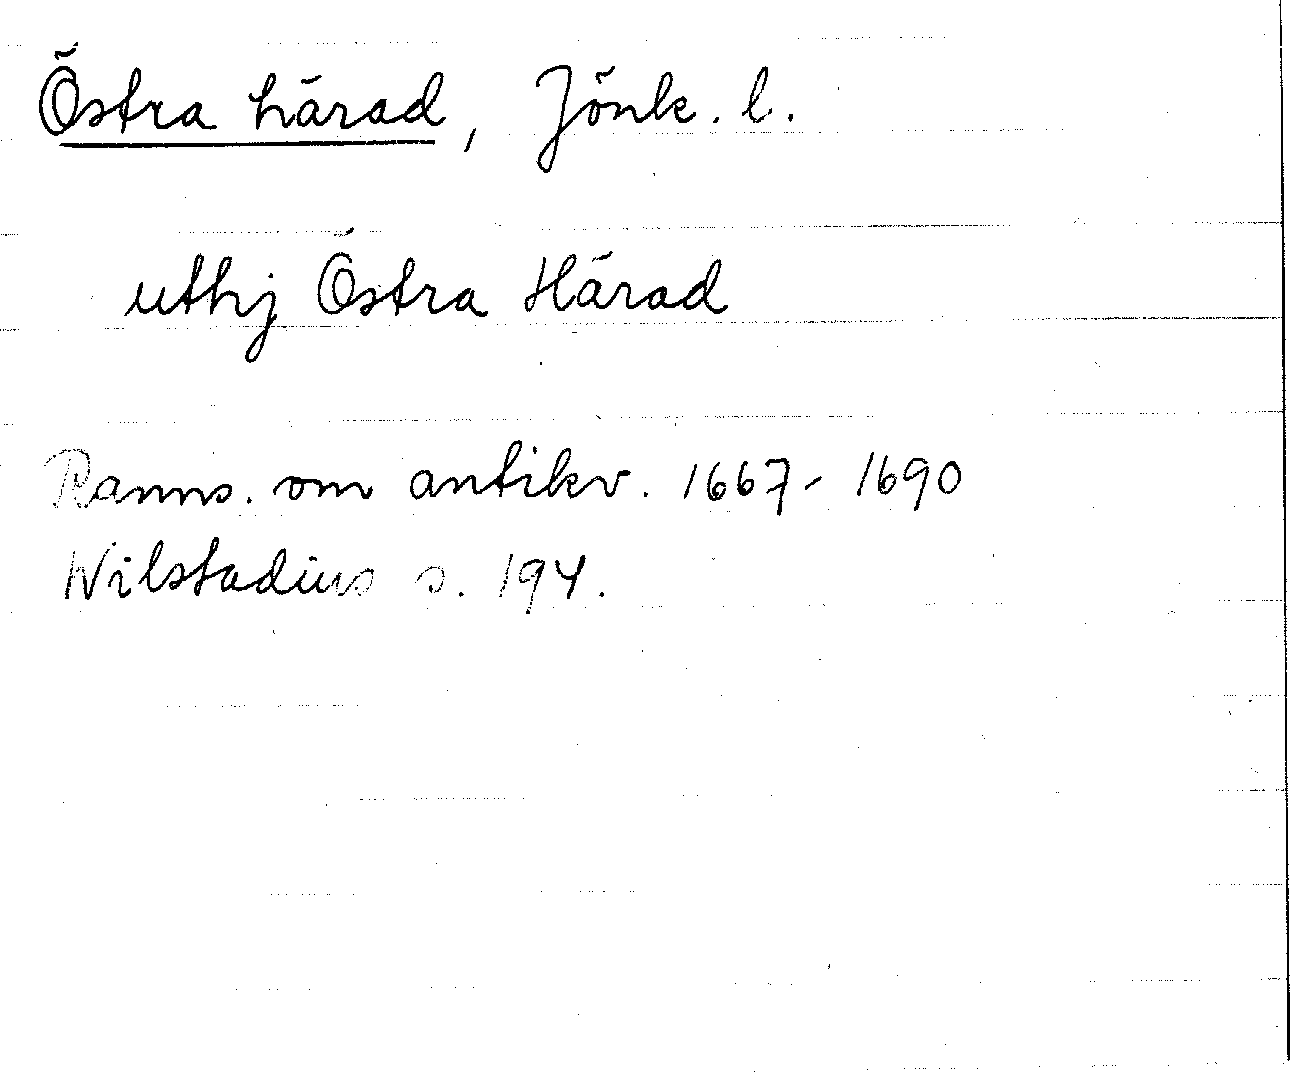 Östra härad, Jönk. l.
uthj Östra Härad
Ranns. om antikv. 1667-1690
Wilstadius s. 194.